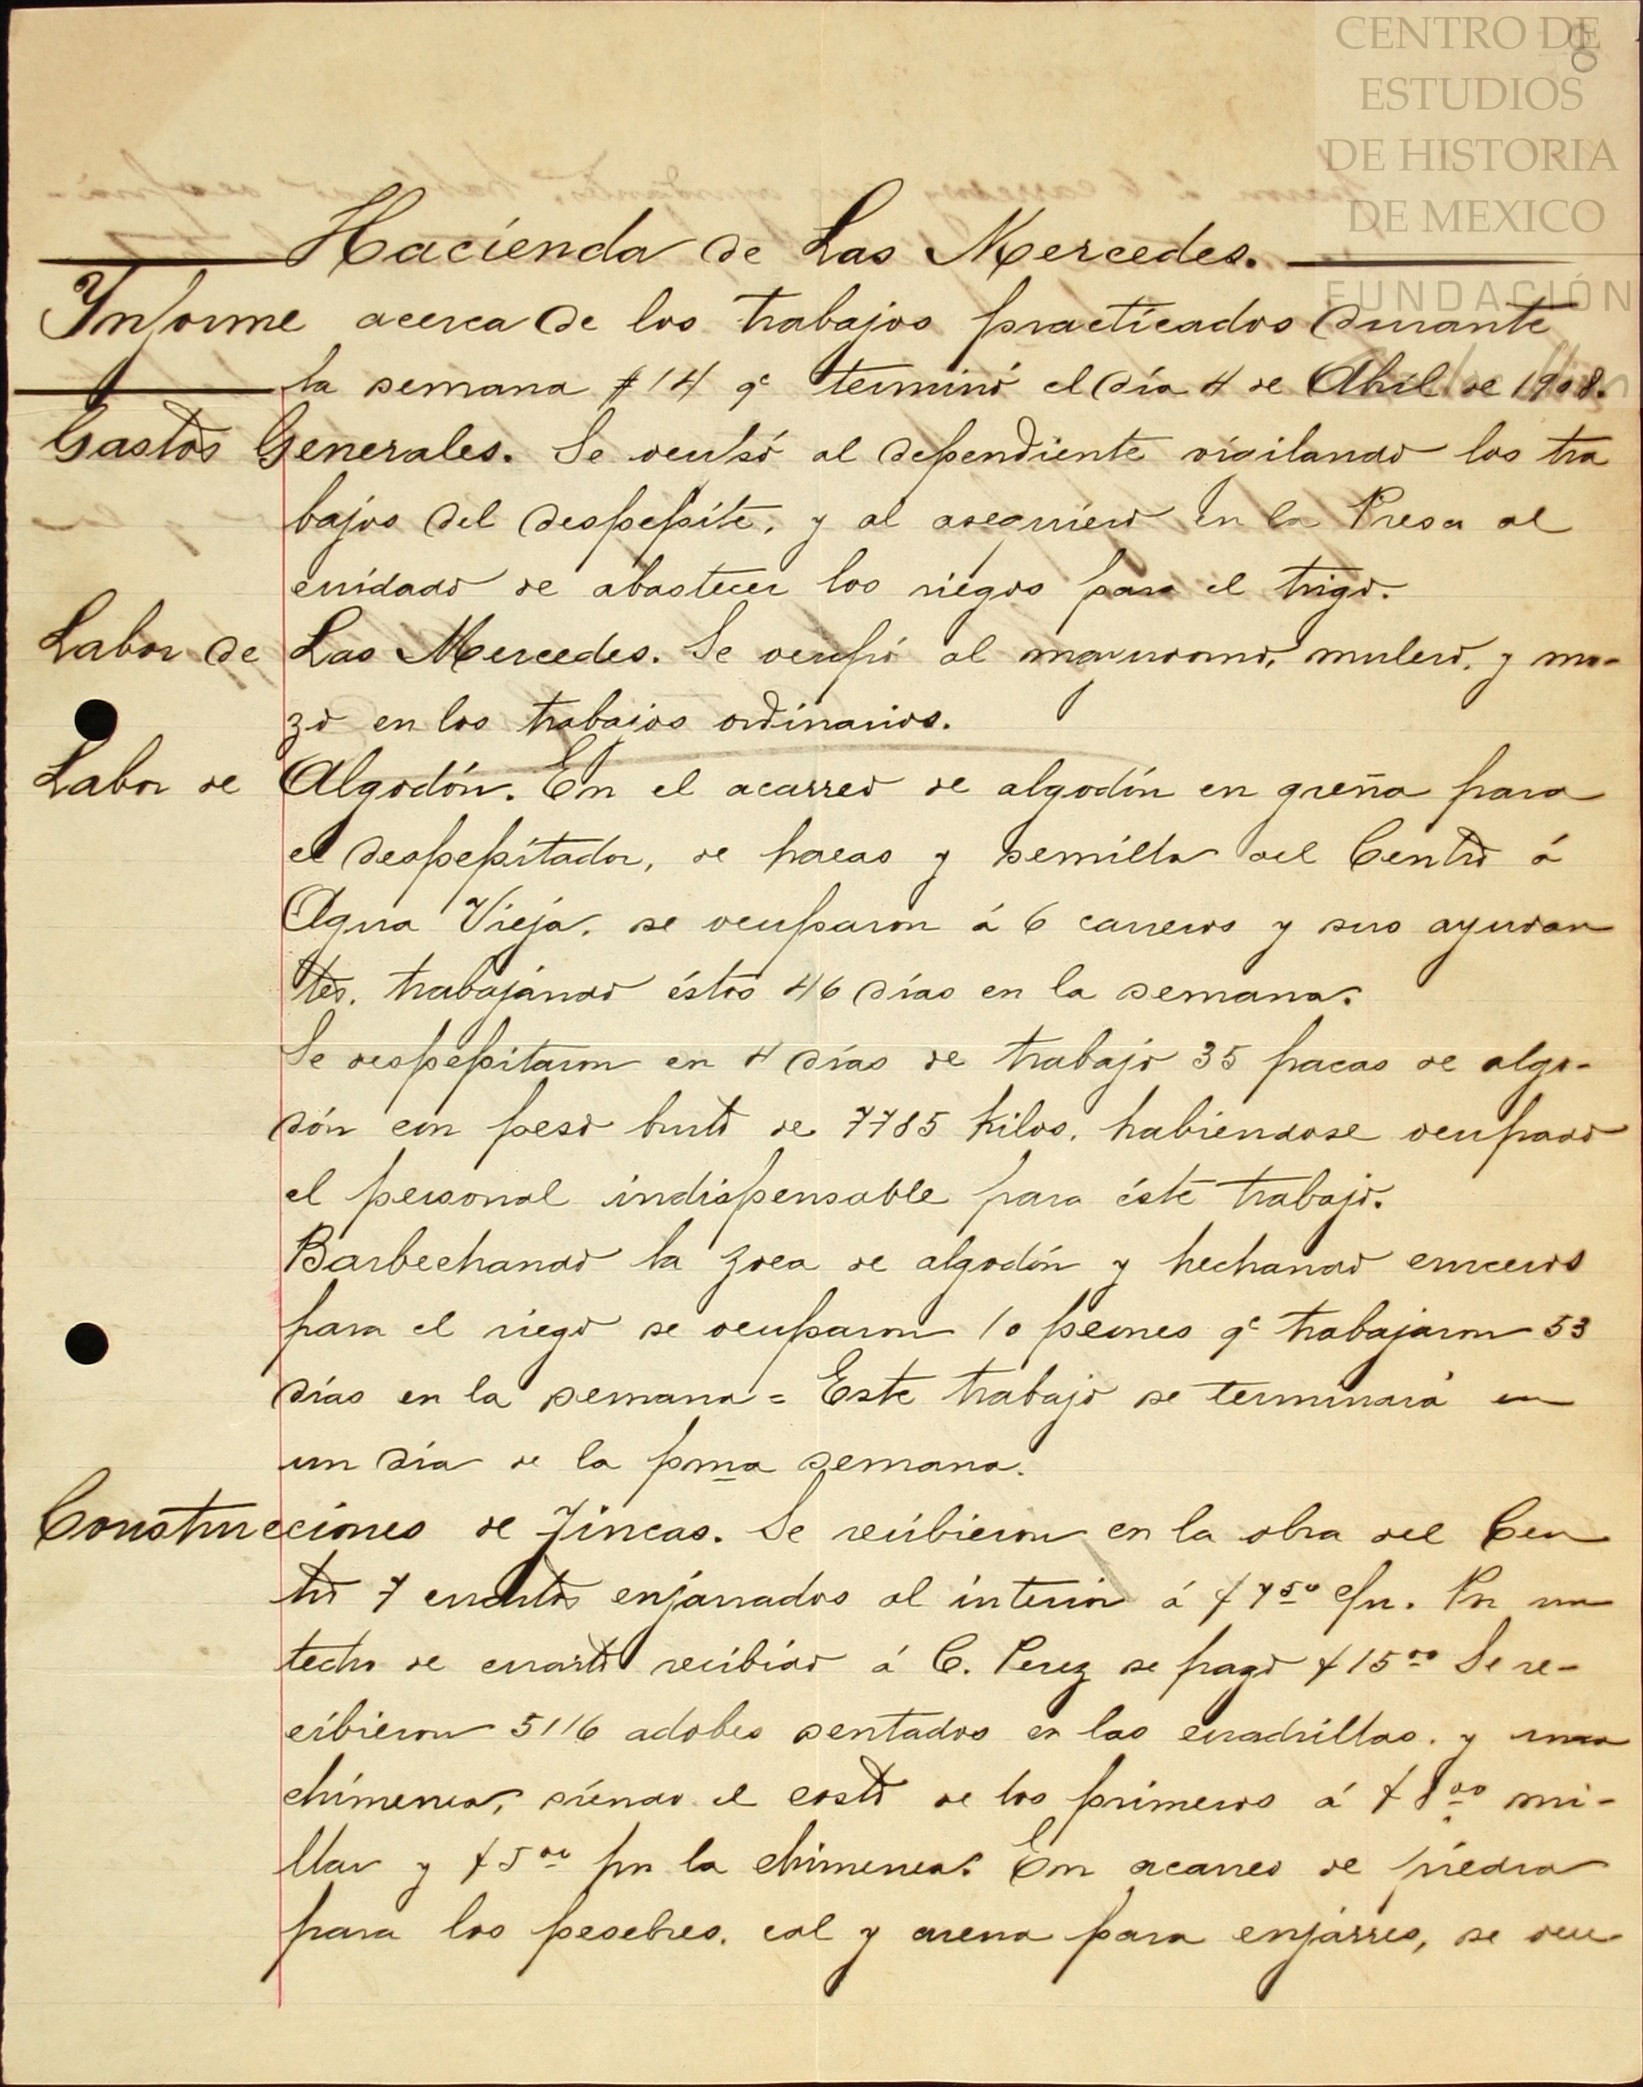 CENTRO DE
ESTUDIOS
DE HISTORIA
DE MEXICO
FUNDACIÓN
8
Hacienda de Las Mercedes.
Informe acerca de los trabajos practicados durante
la semana # 14 qe terminó el día 4 de Abril de 1908.
Gastos Generales. Se ocupó al dependiente vigilando los tra
bajos del despepite, y al aseguiero en la Presa al
cuidado de abastecer los riegos para el trigo.
Labor de Las Mercedes. Se ocupó al mayordomo, mulero, y mo-
zo en los trabajos ordinarios.
Labor de Algodón. En el acarreo de algodón en greña para
el despepitador, de pacas y semilla del Centro á
Agua Vieja, se ocuparon á 6 carreros y sus ayudan
tes, trabajando éstos 46 días en la semana.
Se despepitaron en 4 días de trabajo 35 pacas de algo-
dón con peso bruto de 7785 kilos, habiendose ocupado
el personal indispensable para éste trabajo.
Barbechando la zoca de algodón y hechando cruceros
para el riego se ocuparon 10 peones qe trabajaron 53
días en la semana = Este trabajo se terminará en
un día de la pma semana.
Construcciones de Fincas. Se recibieron en la obra del Cen
tro 7 cuartos enjarrados al interior á $ 7.50 c/u. Por un
techo de cuarto recibido á C. Perez se pagó $ 15.00 Se re-
cibieron 5116 adobes sentados en las cuadrillas, y una
chimenea, siendo el costo de los primeros á $ 8.00 mi-
llar y $ 5.00 por la chimenea. En acarreo de piedra
para los pesebres, cal y arena para enjarres, se ocu-